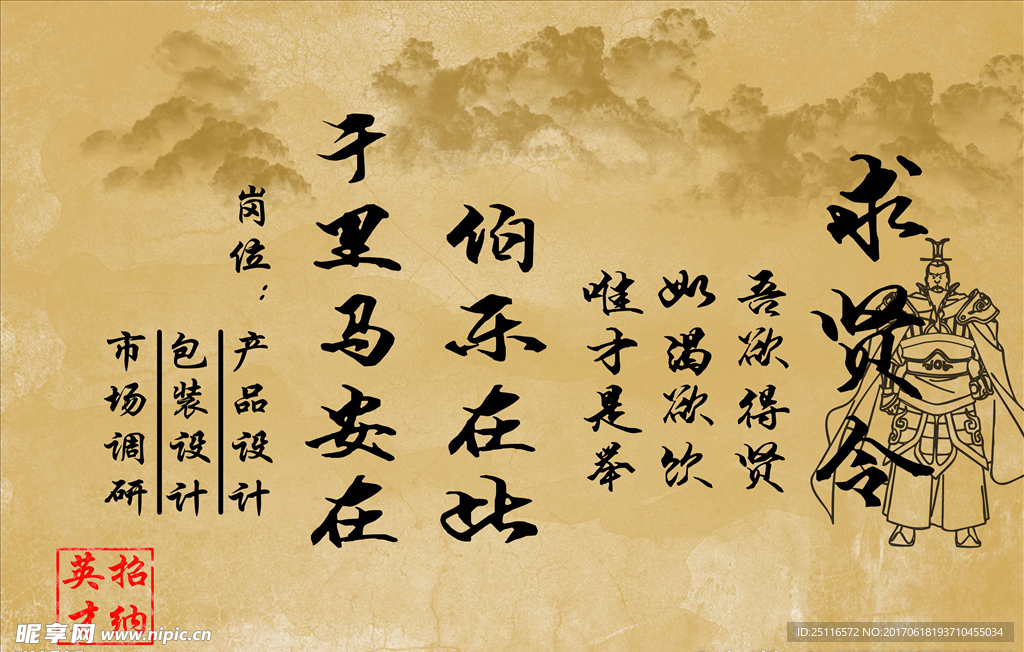 求贤令
吾欲得贤
如渴欲饮
唯才是举
伯乐在此
千里马安在
岗位：
产品设计
包装设计
市场调研
招纳
英才
昵享网 www.nipic.cn
ID:25116572 NO:20170618193710455034